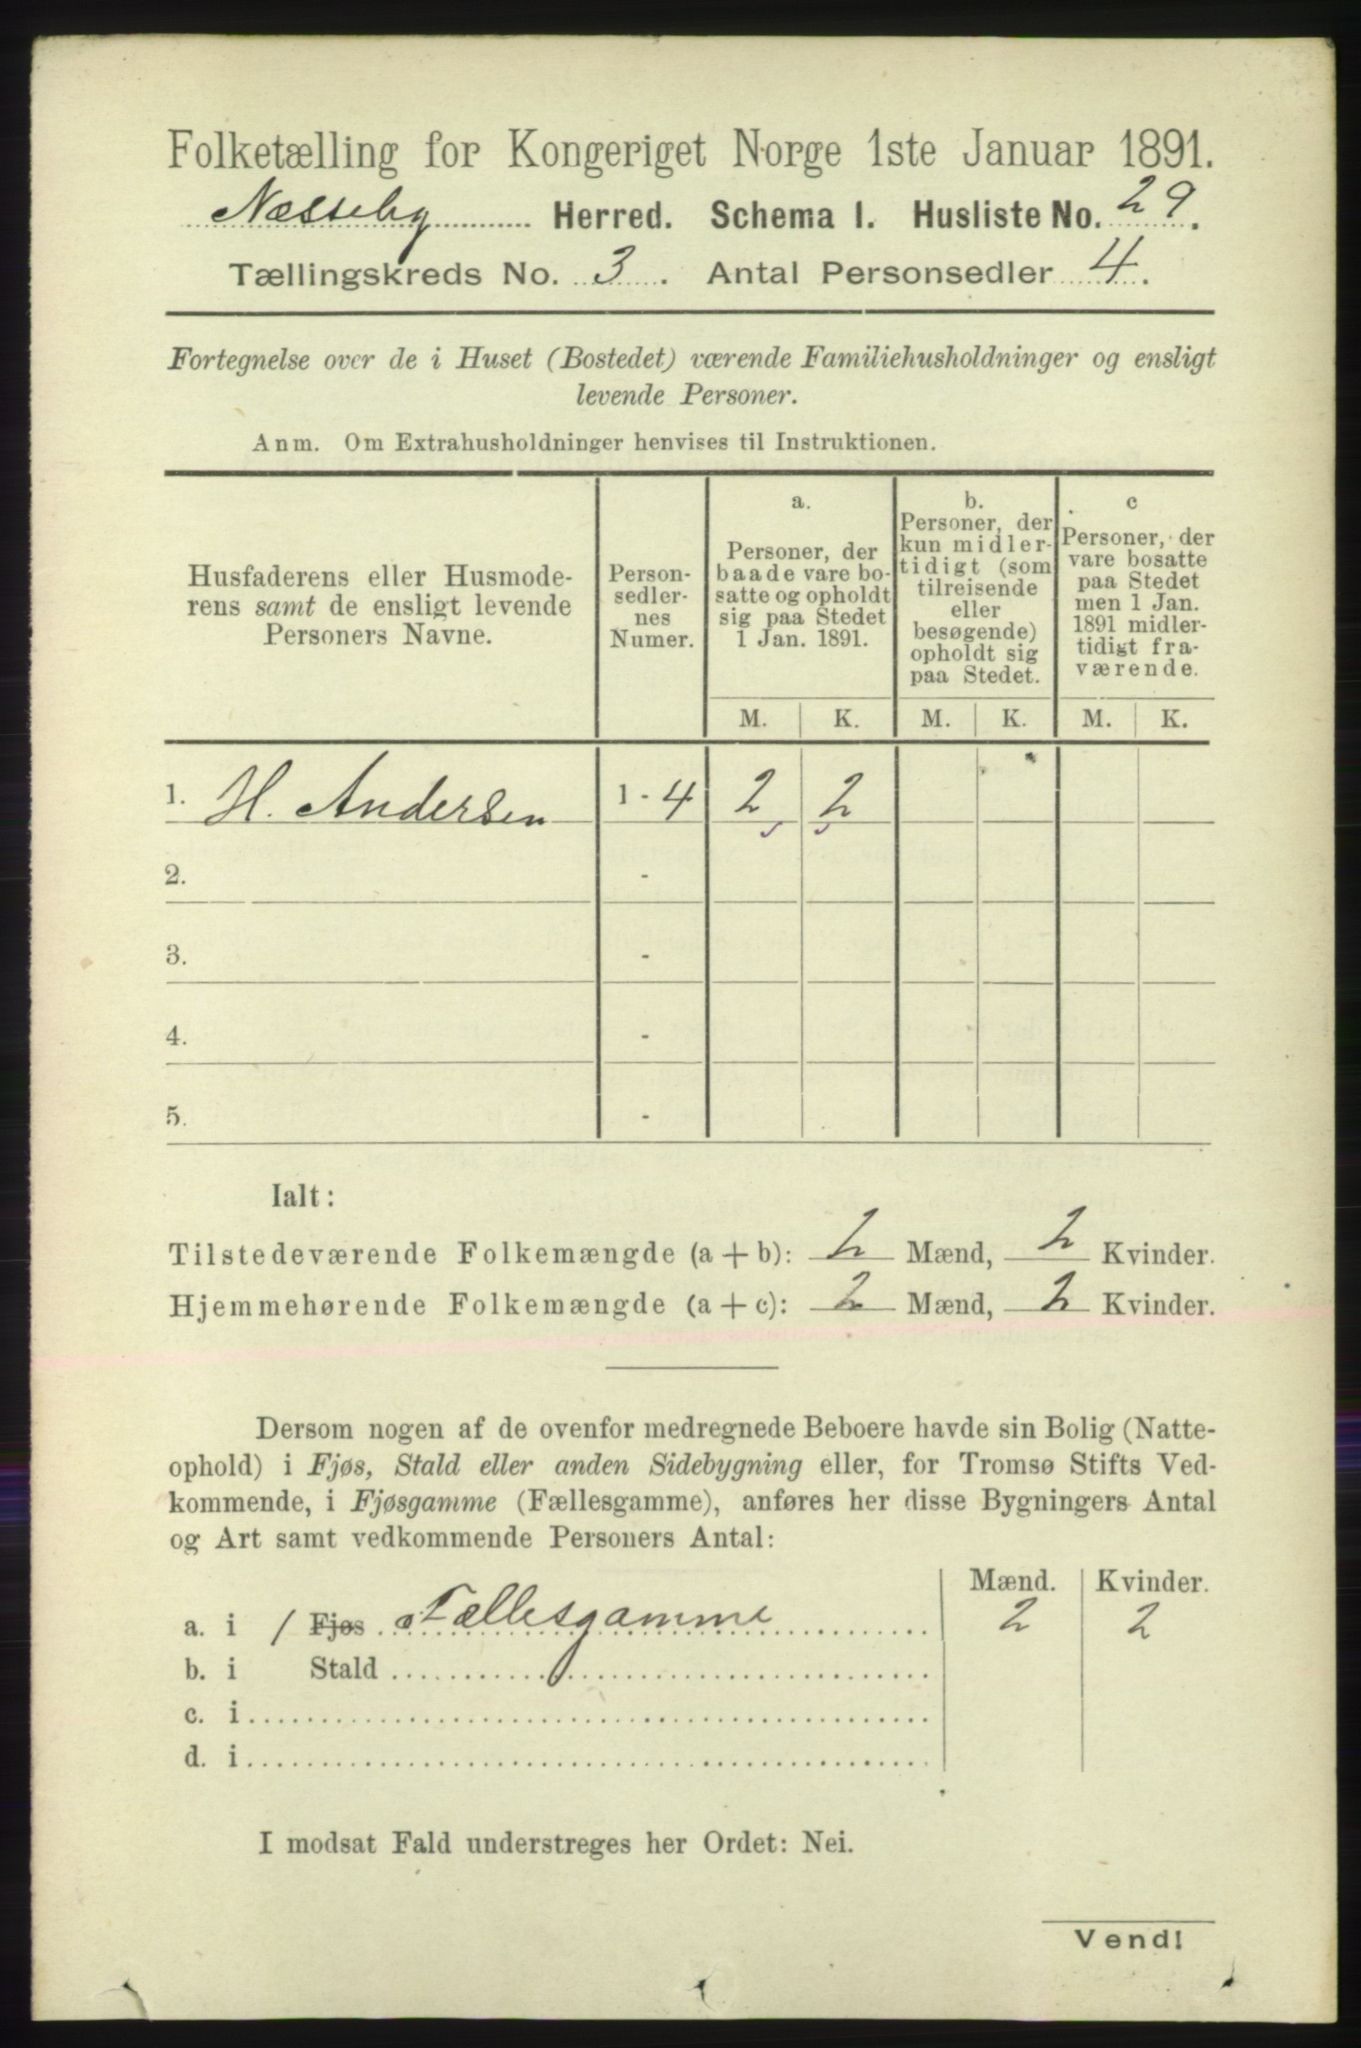 Folketælling for Kongeriget Norge 1ste Januar 1891.
Næsseby Herred. Schema I. Husliste No. 29.
Tællingskreds No. 3. Antal Personsedler 4.
Fortegnelse over de i Huset (Bostedet) værende Familiehusholdninger og ensligt
levende Personer.
Anm. Om Extrahusholdninger henvises til Instruktionen.
Husfaderens eller Husmode-
rens samt de ensligt levende
Personers Navne.
Person-
sedler-
nes
Numer.
a.
Personer, der
baade vare bo-
satte og opholdt
sig paa Stedet
1 Jan. 1891.
b.
Personer, der
kun midler-
tidigt (som
tilreisende
eller
besøgende)
opholdt sig
paa Stedet.
c
Personer, der
vare bosatte
paa Stedet
men 1 Jan.
1891 midler-
tidigt fra-
værende.
M. K. M. K. M. K.
1. H. Andersen 1 - 4 2 2
2. -
3. -
4. -
5. -
Ialt:
Tilstedeværende Folkemængde (a + b): 2 Mænd, 2 Kvinder.
Hjemmehørende Folkemængde (a + c): 2 Mænd, 2 Kvinder.
Dersom nogen af de ovenfor medregnede Beboere havde sin Bolig (Natte-
ophold) i Fjøs, Stald eller anden Sidebygning eller, for Tromsø Stifts Ved-
kommende, i Fjøsgamme (Fællesgamme), anføres her disse Bygningers Antal
og Art samt vedkommende Personers Antal:
Mænd. Kvinder.
a. i 1 Fjøs Fællesgamme 2 2
b. i Stald
c. i
d. i
I modsat Fald understreges her Ordet: Nei.
Vend!